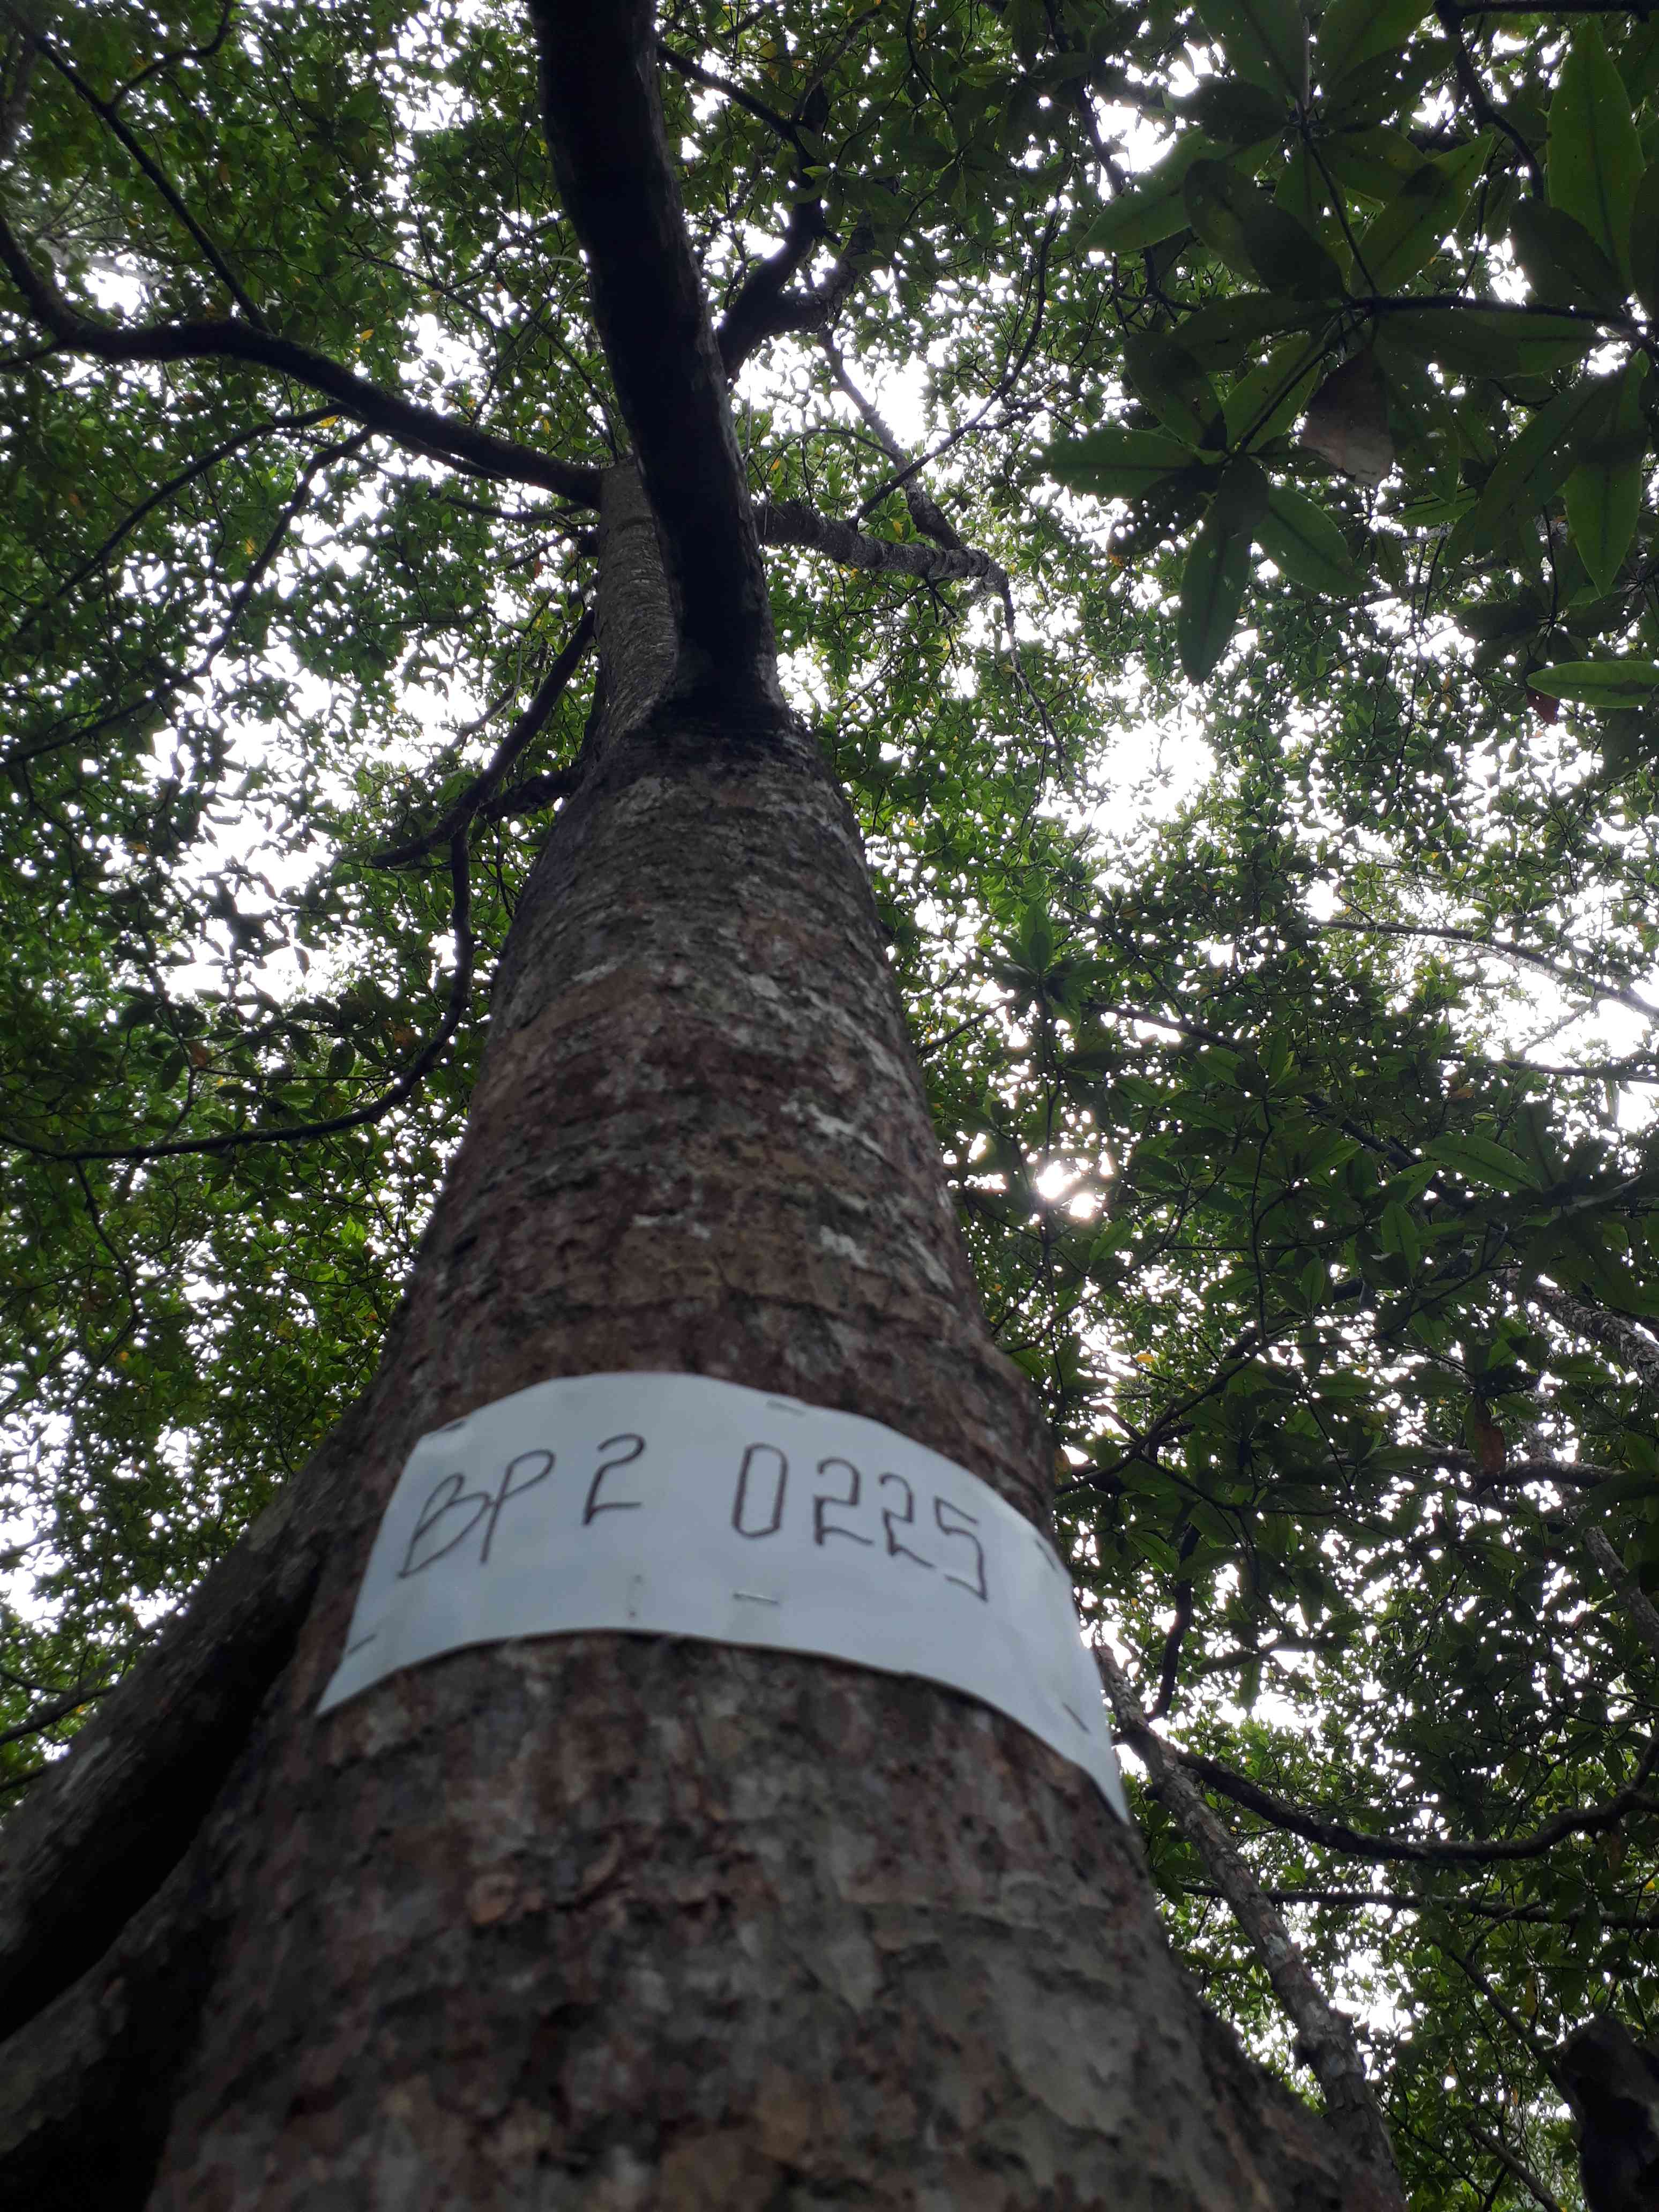 BP 2 0225